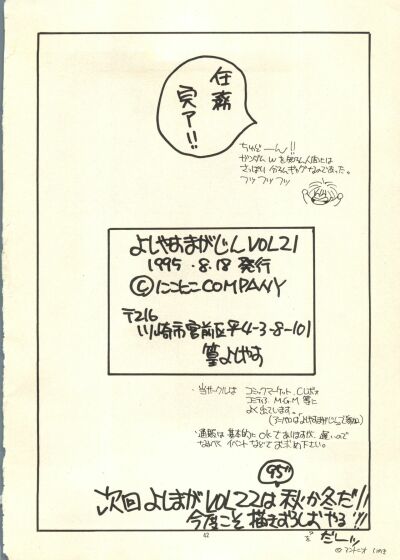 任務
完了!!
ちゅどーん!!
ガンダムWを知らん人間には
さっぱり分らんギャグなのであった。
フッフッフッ
よしやすまがじんVOL21
1995.8.18 発行
©にこにこCOMPANY
〒216
川崎市宮前区平4-3-8-101
篁よしやす
・当サークルは コミックマーケット、C.レボ、
コミティア、M.G.M 等に
よく出ています。
・通販は基本的にOKでありますが、遅いので
なるべく イベントなどでお求め下さい。
95
次回 よしまが VOL22は 秋か冬だ!!
今度こそ 描き
だーッ
42